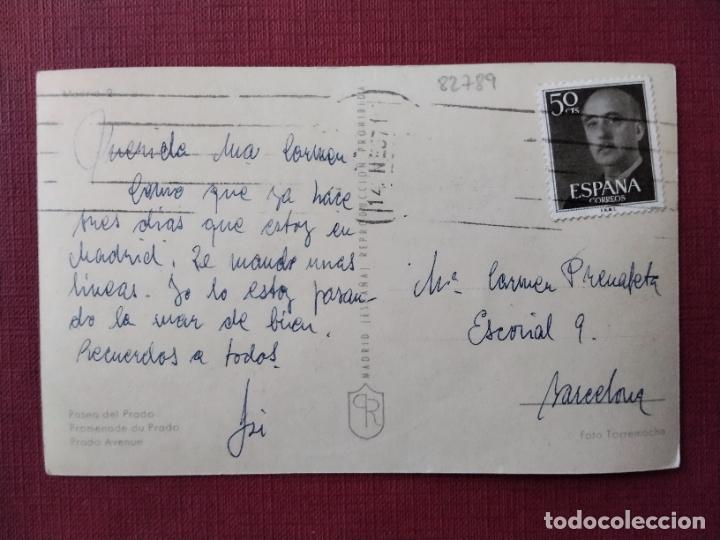 82789
50
CTS
ESPAÑA
CORREOS
Querida Mª Carmen
Como que ya hace
tres días que estoy en
Madrid. Te mando unas
líneas. Yo lo estoy pasan-
do la mar de bien.
Recuerdos a todos.
Mª Carmen Prenafeta
Escorial 9.
Barcelona
Paseo del Prado
Promenade du Prado
Prado Avenue
MADRID (ESPAÑA) REPRODUCCION PROHIBIDA
Foto Torremocha
todocoleccion.net